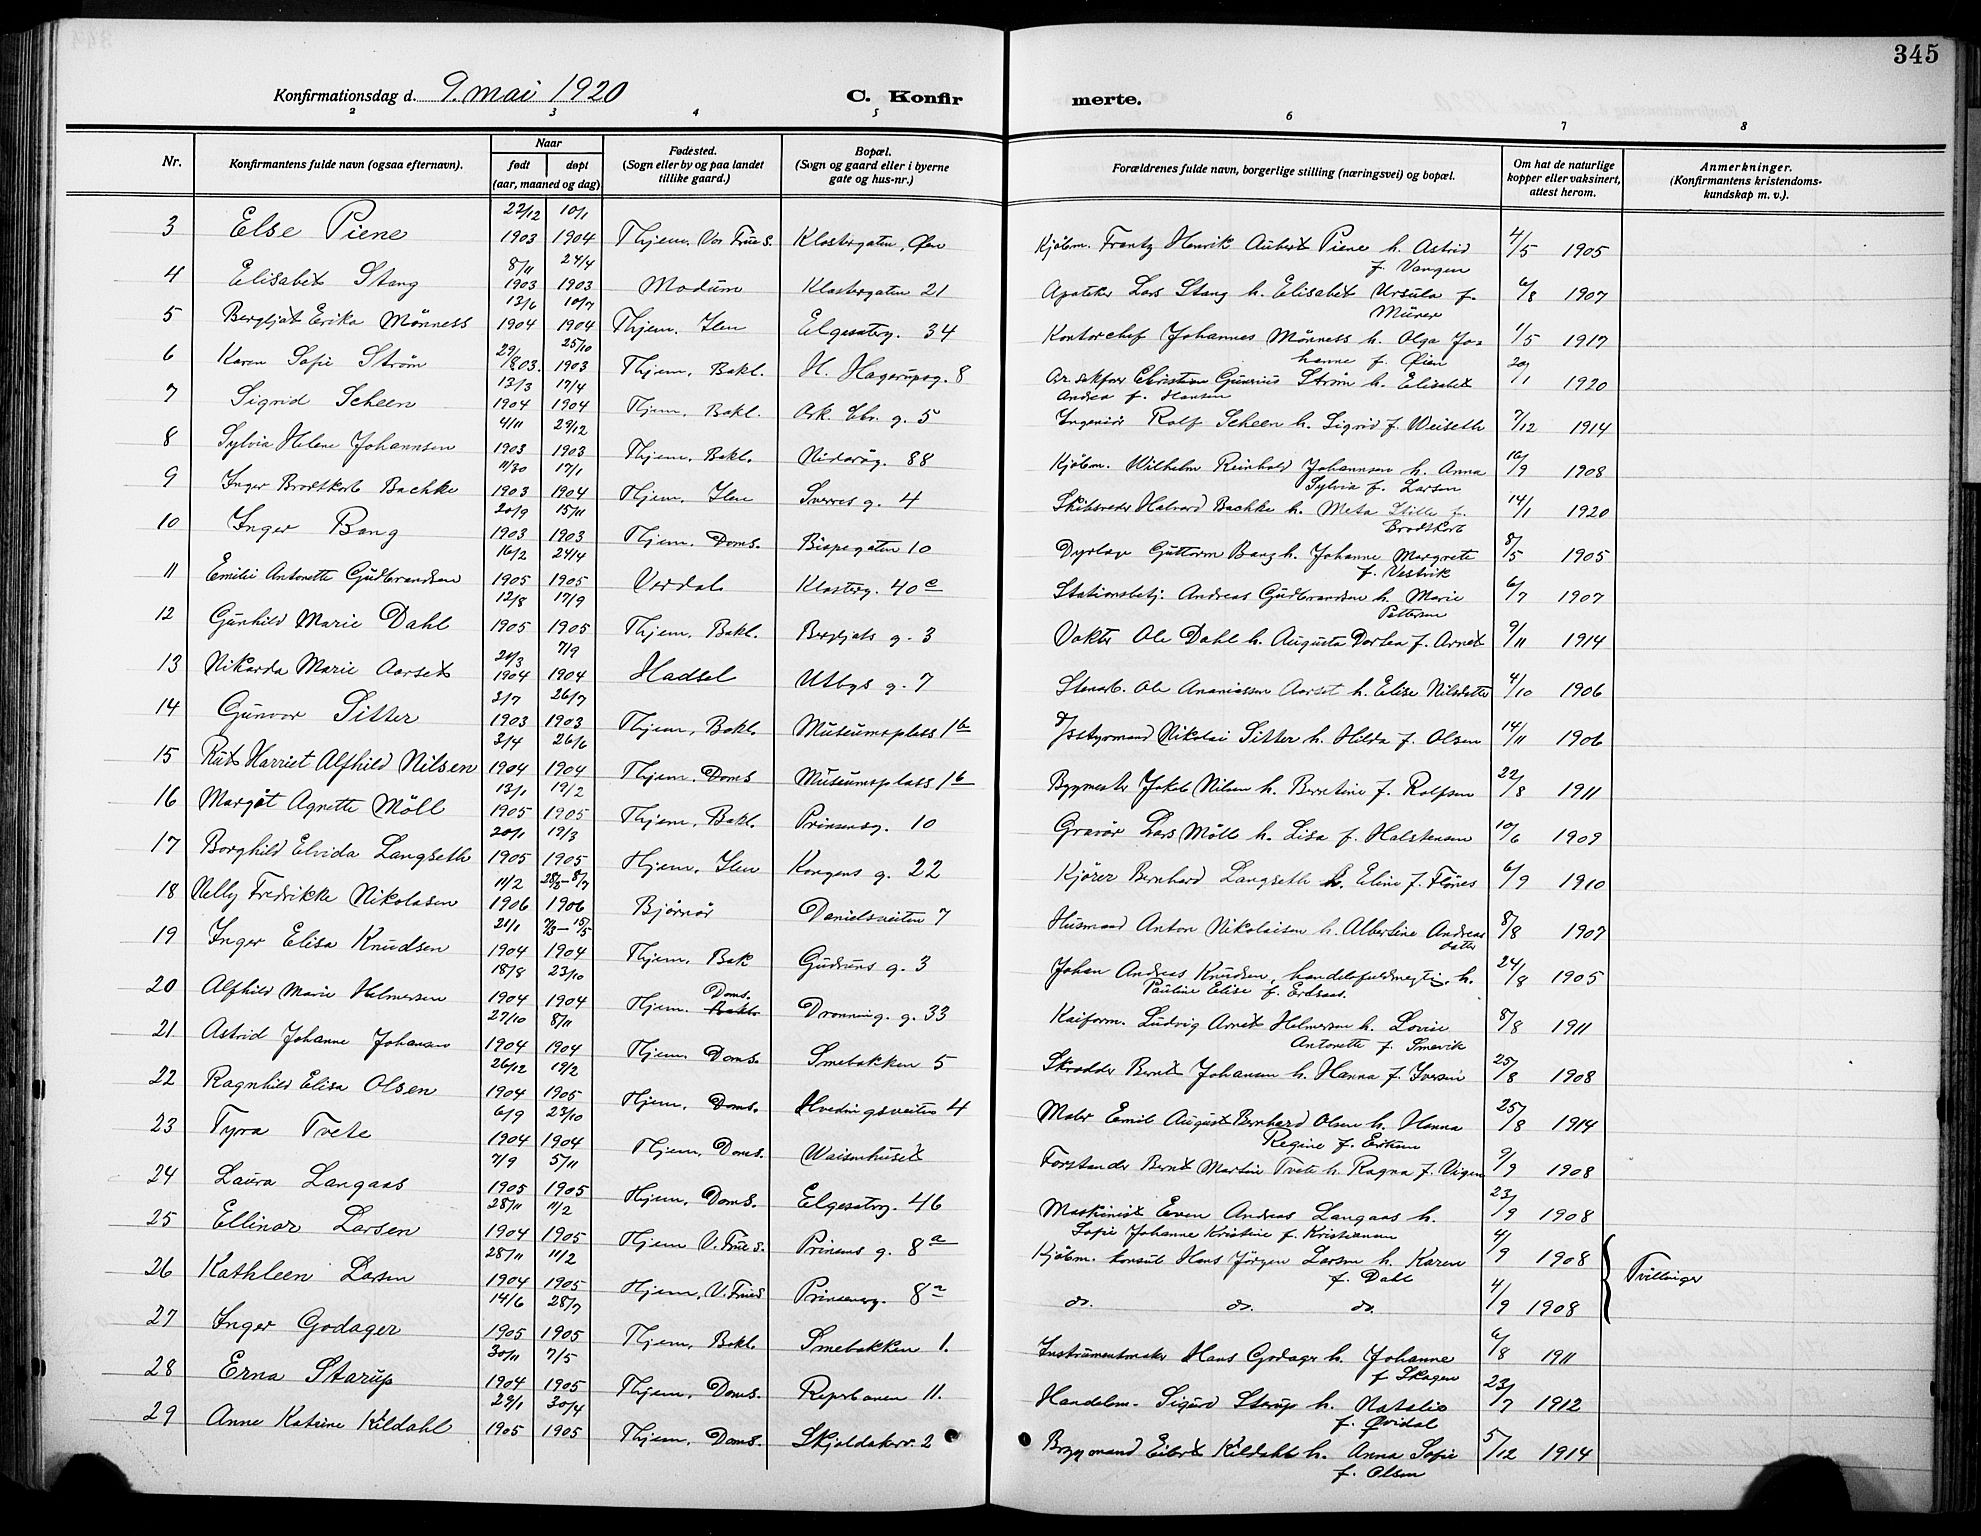 345
Konfirmationsdag d. 9. mai 1920
C. Konfirmerte.
2 3 4 5 6 7 8
Nr.
Konfirmantens fulde navn (ogsaa efternavn).
Naar
født døpt
(aar, maaned og dag)
Fødested.
(Sogn eller by og paa landet
tillike gaard.)
Bopæl.
(Sogn og gaard eller i byerne
gate og hus-nr.)
Forældrenes fulde navn, borgerlige stilling (næringsvei) og bopæl.
Om hat de naturlige
kopper eller vaksinert,
attest herom.
Anmerkninger.
(Konfirmantens kristendoms-
kundskap m. v.).
3 Else Piene 22/12 1903 10/1 1904 Thjem. Vor Frue S. Klostergaten, Øen Kjøbm. Frantz Henrik Aubert Piene h. Astrid f. Vangen 4/5 1905
4 Elisabet Stang 8/11 1903 24/4 1903 Modum Klostergaten 21 Apoteker Lars Stang h. Elisabet Ursula f. Mürer 6/8 1907
5 Bergljot Erika Mønness 12/6 1904 10/7 1904 Thjem. Ilen Elgesetrg. 34 Kontorchef Johannes Mønness h. Olga Johanne f. Øien 1/5 1917
6 Karen Sofie Strøm 29/8 03. 25/10 1903 Thjem, Bakl. H. Hagerupsg. 8 Christian Gunerius Strøm h. Elisabet Andrea f. Hansen 20/1 1920
7 Sigrid Scheen 13/3 1904 17/4 1904 Thjem, Bakl. Ark. Chr. g. 5 Ingeniør Rolf Scheen h. Sigrid f. Weiseth 7/12 1914
8 Sylvia Helene Johannsen 4/11 1903 29/12 1903 Thjem, Bakl. Nidarøg. 88 Kjøbm. Wilhelm Reinhold Johannsen h. Anna Sylvia f. Larsen 16/9 1908
9 Inger Brodtkorb Bachke 11/30 1903 17/1 1904 Hjem, Ilen Sverres g. 4 Skibsreder Halvard Bachke h. Meta f. Brodtkorb 14/1 1920
10 Inger Bang 20/9 1903 15/11 1903 Thjem, Doms. Bispegaten 10 Dyrlæge Guttorm Bang h. Johanne Margrete f. Vestvik 8/5 1905
11 Emilie Antonette Gudbrandsen 16/2 1905 24/4 1905 Verdal Klosterg. 40 c Stationsbetj. Andreas Gudbrandsen h. Marie Pettersen 6/7 1907
12 Gunhild Marie Dahl 12/8 1905 17/9 1905 Thjem, Bakl. Bergljots g. 3 Vokter Ole Dahl h. Augusta Dortea f. Arnet 9/11 1914
13 Nikarda Marie Aarset 20/3 1904 7/9 1904 Hadsel Utbys g. 7 Stenarb. Ole Ananiassen Aarset h. Elise Nilsdatter 4/10 1906
14 Gunvor Sitter 3/7 1903 26/7 1903 Thjem, Bakl. Museumsplass 1b Nikolai Sitter h. Hilda f. Olsen 14/11 1906
15 Rut Harriet Alfhild Nilsen 3/4 1904 26/6 1904 Thjem, Doms Museumsplass 1b Bygmester Jakob Nilsen h. Berntine f. Rolfsen 22/8 1911
16 Margot Agnette Möll 13/1 1905 19/2 1905 Thjem, Bakl. Prinsensg. 10 Gravör Lars Möll h. Lisa f. Halstensen 10/6 1909
17 Borghild Elvida Langseth 20/1 1905 19/3 1905 Hjem, Ilen Kongens g. 22 Kjører Bernhard Langseth h. Eline f. Flønes 6/9 1910
18 Nelly Fredrikke Nikolaisen 11/2 1906 28/3 - 8/7 1906 Bjørnør Danielsveiten 7 Husmand Anton Nikolaisen h. Albertine Andreasdatter 8/8 1907
19 Inger Elisa Knudsen 21/1 1904 7/3 - 15/5 1904 Thjem, Bak Gudruns g. 3 Johan Andreas Knudsen, handelsfuldmegtig, h. Pauline Elise f. Erdsaas. 24/8 1905
20 Alfhild Marie Helmersen 18/8 1904 23/10 1904 Hjem. Doms. Bakl. Dronning. g. 33 Kaiform. Ludvig Arnet Helmersen h. Lovise Antonette f. Smevik 8/8 1911
21 Astrid Johanne Johansen 27/10 1904 8/11 1904 Hjem, Doms. Smebakken 5 Skrædder Bernt Johansen h. Hanna f. Iversen 25/8 1908
22 Ragnhild Elisa Olsen 26/12 1904 19/2 1905 Hjem, Doms. Hvedingsveiten 4 Maler Emil August Bernhard Olsen h. Hanna Regine f. Eriksen 25/8 1914
23 Tyra Tvete 6/9 1904 23/10 1904 Hjem, Doms. Waisenhuset Forstander Bernt Martin Tvete h. Ragna f. Vigen 9/9 1908
24 Laura Langaas 7/9 1905 5/11 1905 Hjem, Doms. Elgesetrg. 46 Maskinist Even Andreas Langaas h. Sofie Johanne Kristine f. Kristiansen 23/9 1908
25 Ellinor Larsen 28/11 1904 11/2 1905 Hjem V. Frue S. Prinsens g. 8 a Kjøbm. konsul Hans Jörgen Larsen h. Karen f. Dahl 4/9 1908
26 Kathleen Larsen 28/11 1904 11/2 1905 Hjem, V. Frue S Prinsensg. 8 a do. do. do. 4/9 1908 Tvillinger
27 Inger Godager 14/6 1905 28/7 1905 Thjem, Bakl. Smebakken 1. Instrumentmaker Hans Godager h. Johanne f. Skogen 6/8 1911
28 Erna Starup 30/11 1904 7/5 1905 Thjem, Doms. Reperbanen 11. Handelm. Sigurd Sterup h. Natalie f. Øvidal 23/7 1912
29 Anne Katrine Kildahl 29/1 1905 30/4 1905 Thjem, Doms. Skjoldakerv. 2 Bryggmand Eilert Kildahl h. Anna Sofie f. Olsen 5/12 1914